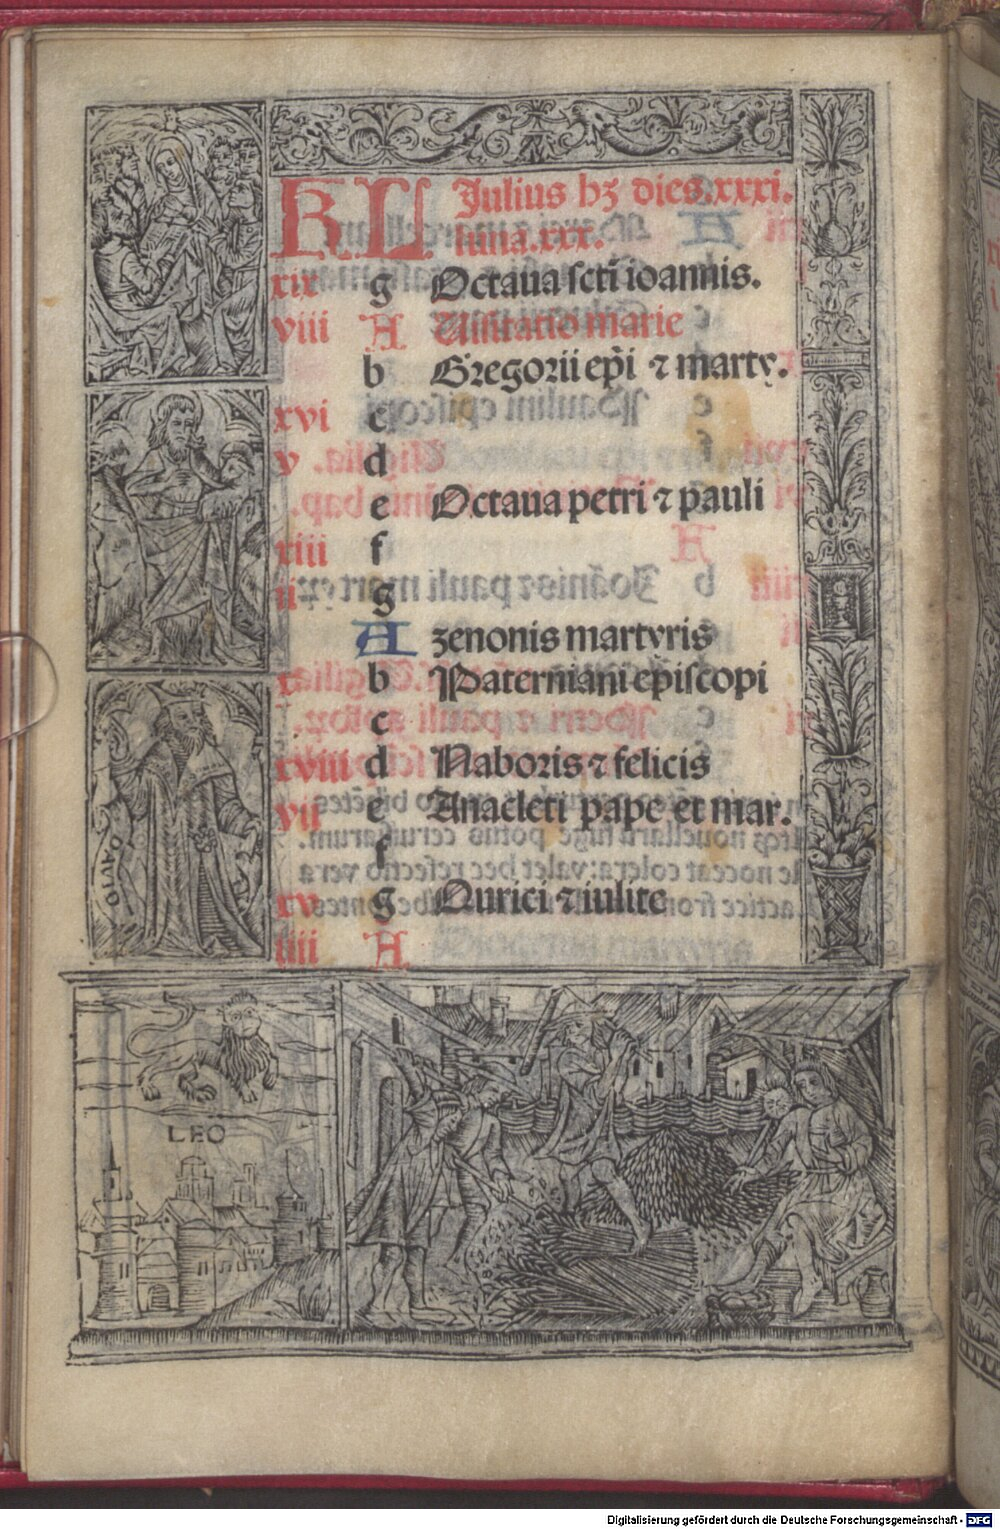 KL Julius hꝫ dies.xxxi.
luna.xxx.
xix g Octaua scti̅ ioannis.
viii A Uisitatio marie
b Gregorii ep̅i ⁊ martꝝ.
xvi c
v d
e Octaua petri ⁊ pauli
xiii f
ii g
A zenonis martyris
x b Paterniani ep̅iscopi
c
xviii d Naboris ⁊ felicis
vii e Anacleti pape et mar.
f
xv g Quirici ⁊ iulite
iiii A
DAVID
LEO
Digitalisierung gefördert durch die Deutsche Forschungsgemeinschaft - DFG